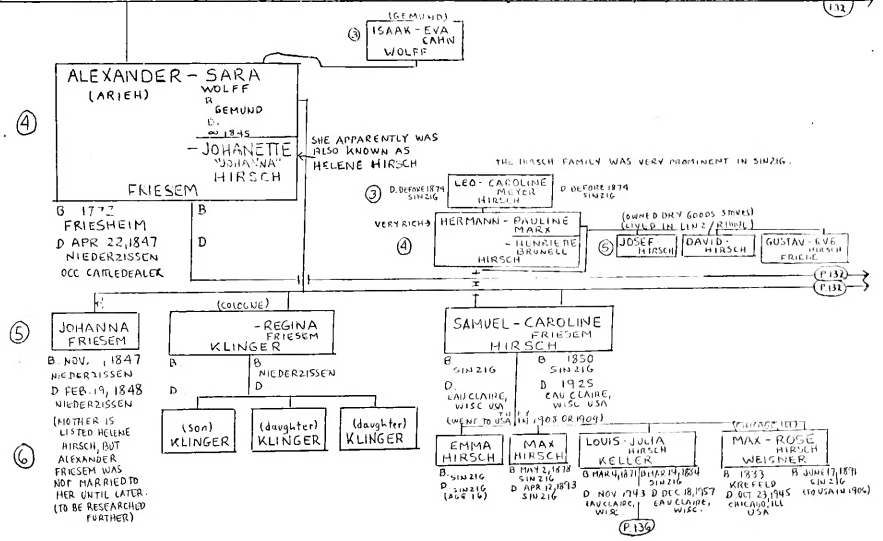 132
(GEMUND)
③ ISAAK - EVA
CAHN
WOLFF
ALEXANDER - SARA
(ARIEH) WOLFF
B
GEMUND
D.
∞ 1845
④
- JOHANETTE
"JOHANNA"
HIRSCH
FRIESEM
SHE APPARENTLY WAS
ALSO KNOWN AS
HELENE HIRSCH
B 1772
FRIESHEIM
D APR 22, 1847
NIEDERZISSEN
OCC CATTLEDEALER
B
D
THE HIRSCH FAMILY WAS VERY PROMINENT IN SINZIG.
③ D. BEFORE 1874
SINZIG
LEO - CAROLINE
MEYER
HIRSCH
D BEFORE 1874
SINZIG
VERY RICH →
④
HERMANN - PAULINE
MARX
- HENRIETTE
BRUNELL
HIRSCH
(OWNED DRY GOODS STORES)
(LIVED IN LINZ/RHEIN)
⑤ JOSEF
HIRSCH
DAVID -
HIRSCH
GUSTAV - EVE
HIRSCH
P. 132
P. 132
⑤
JOHANNA
FRIESEM
B. NOV. , 1847
NIEDERZISSEN
D FEB. 19, 1848
NIEDERZISSEN
(MOTHER IS
LISTED HELENE
HIRSCH, BUT
ALEXANDER
FRIESEM WAS
NOT MARRIED TO
HER UNTIL LATER.
(TO BE RESEARCHED
FURTHER)
(COLOGNE)
- REGINA
FRIESEM
KLINGER
B
D
B
NIEDERZISSEN
D
SAMUEL - CAROLINE
FRIESEM
HIRSCH
B
SINZIG
D.
EAU CLAIRE,
WISC USA
B 1850
SINZIG
D 1925
EAU CLAIRE,
WISC USA
(WENT TO USA IN 1908 OR 1909)
⑥
(son)
KLINGER
(daughter)
KLINGER
(daughter)
KLINGER
EMMA
HIRSCH
B.
SINZIG
D
SINZIG
(AGE 16)
MAX
HIRSCH
B MAY 2, 1878
SINZIG
D APR 12, 1893
SINZIG
LOUIS - JULIA
HIRSCH
KELLER
B MAR 4, 1871
D NOV 1943
EAU CLAIRE,
WISC
B MAR 14, 1884
SINZIG
D DEC 18, 1957
EAU CLAIRE,
WISC.
P. 136
MAX - ROSE
HIRSCH
WEISNER
B 1883
KREFELD
D OCT 23, 1945
CHICAGO, ILL
USA
B JUNE 17, 1891
SINZIG
(TO USA IN 1906)